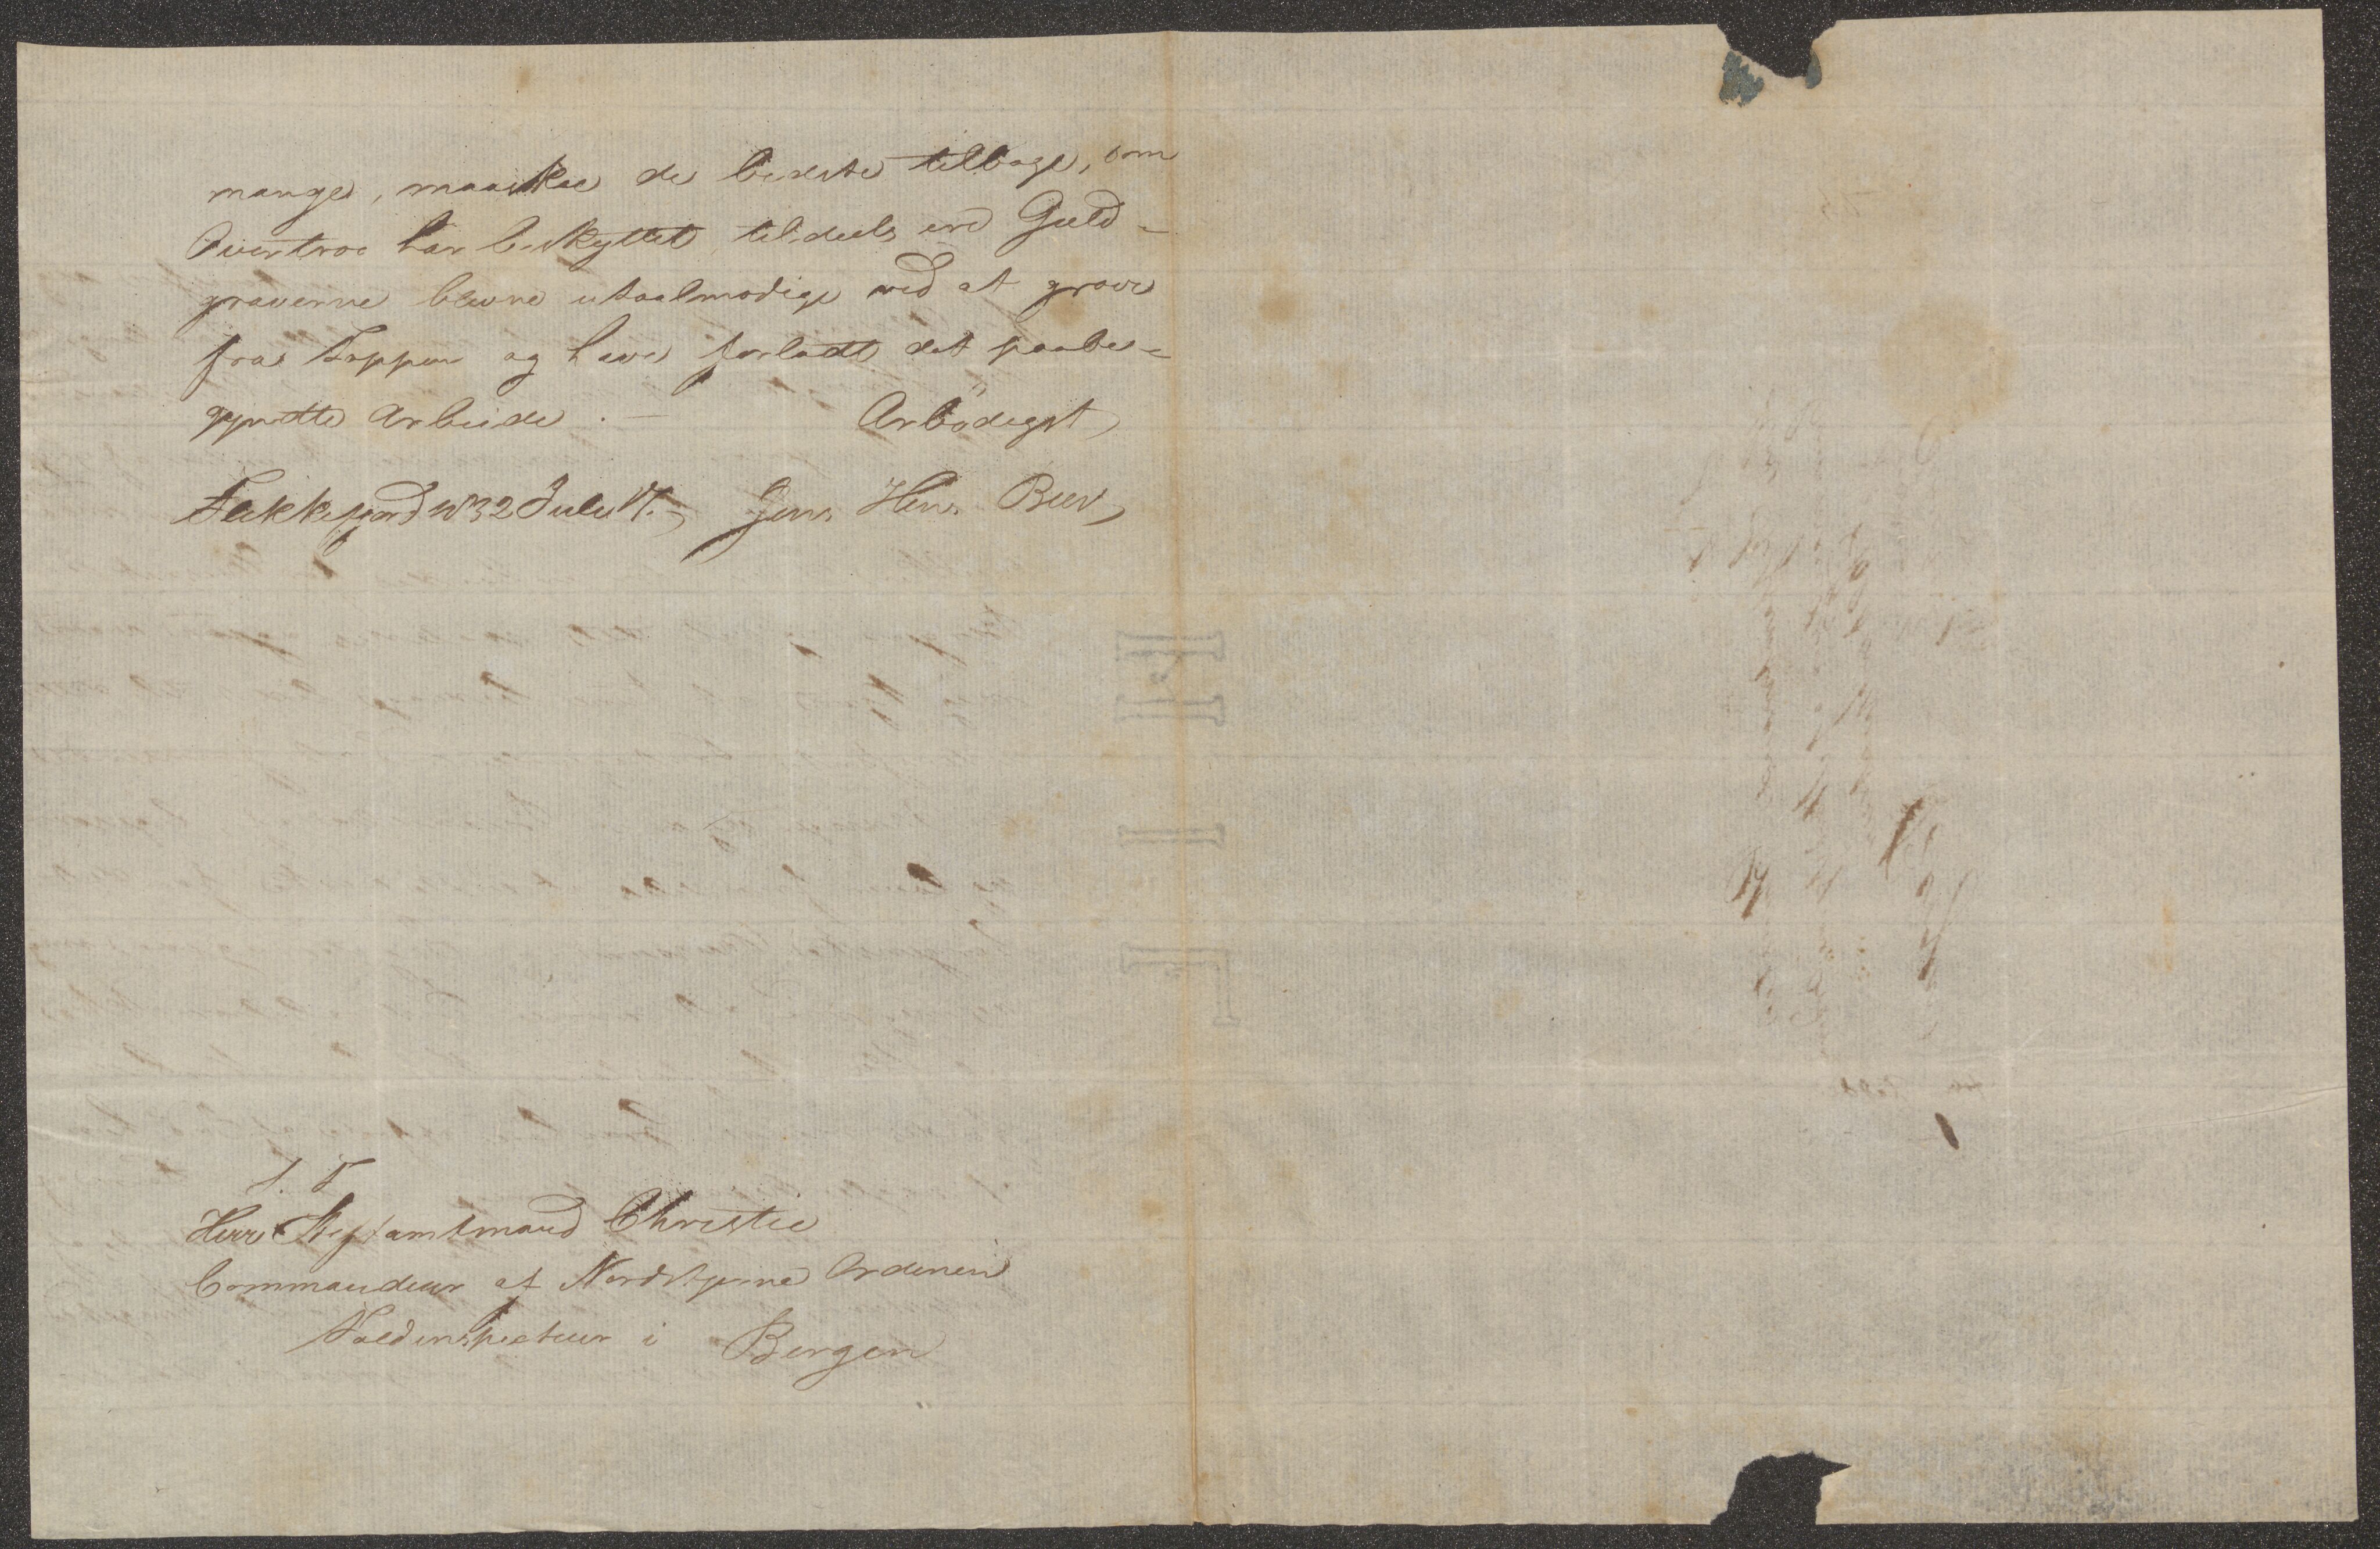 mange, maaskee de bedste tilbage, som
Overtroe har beskyttet, tildeels ere Guld-
graverne blevne utaalmodige ved at grave
fra Toppen og have forladt det paabe-
gyndte Arbeide. — Ærbödigst
Flekkefjord Juli Jens Henr Beer
S. T
Herr Stiftamtmand Christie
Commandeur af Nordstjerne Ordenen
Toldinspecteur i Bergen